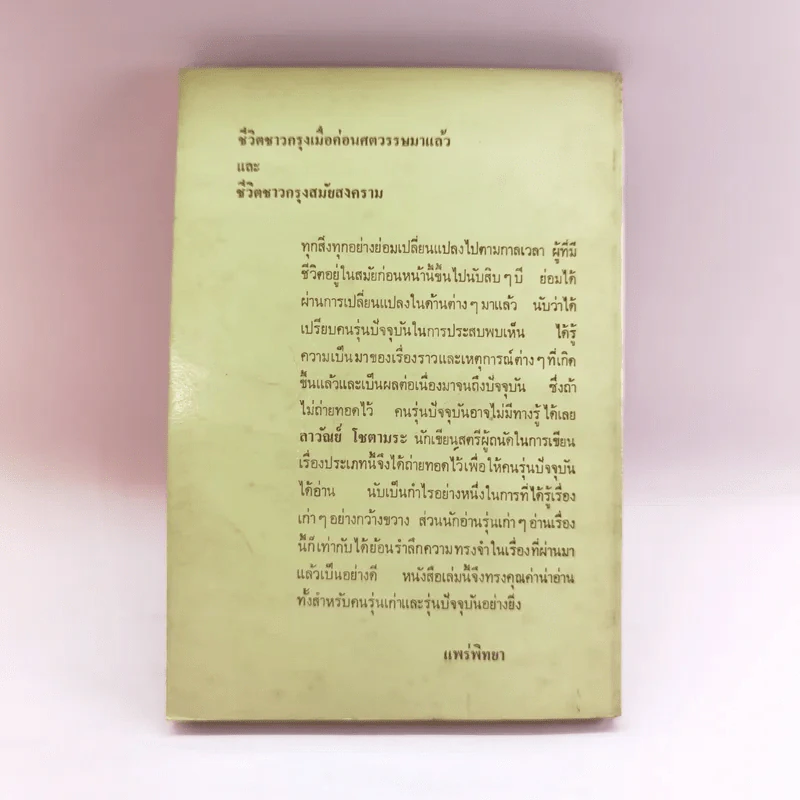 ชีวิตชาวกรุงเมื่อค่อนศตวรรษมาแล้ว
และ
ชีวิตชาวกรุงสมัยสงคราม
ทุกสิ่งทุกอย่างย่อมเปลี่ยนแปลงไปตามกาลเวลา ผู้ที่มี
ชีวิตอยู่ในสมัยก่อนหน้านี้ขึ้นไปนับสิบๆปี ย่อมได้
ผ่านการเปลี่ยนแปลงในด้านต่างๆมาแล้ว นับว่าได้
เปรียบคนรุ่นปัจจุบันในการประสบพบเห็น ได้รู้
ความเป็นมาของเรื่องราวและเหตุการณ์ต่างๆที่เกิด
ขึ้นแล้วและเป็นผลต่อเนื่องมาจนถึงปัจจุบัน ซึ่งถ้า
ไม่ถ่ายทอดไว้ คนรุ่นปัจจุบันอาจไม่มีทางรู้ได้เลย
ลาวัณย์ โชตามระ นักเขียนสตรีผู้ถนัดในการเขียน
เรื่องประเภทนี้จึงได้ถ่ายทอดไว้เพื่อให้คนรุ่นปัจจุบัน
ได้อ่าน นับเป็นกำไรอย่างหนึ่งในการที่ได้รู้เรื่อง
เก่าๆอย่างกว้างขวาง ส่วนนักอ่านรุ่นเก่าๆอ่านเรื่อง
นี้ก็เท่ากับได้ย้อนรำลึกความทรงจำในเรื่องที่ผ่านมา
แล้วเป็นอย่างดี หนังสือเล่มนี้จึงทรงคุณค่าน่าอ่าน
ทั้งสำหรับคนรุ่นเก่าและรุ่นปัจจุบันอย่างยิ่ง
แพร่พิทยา